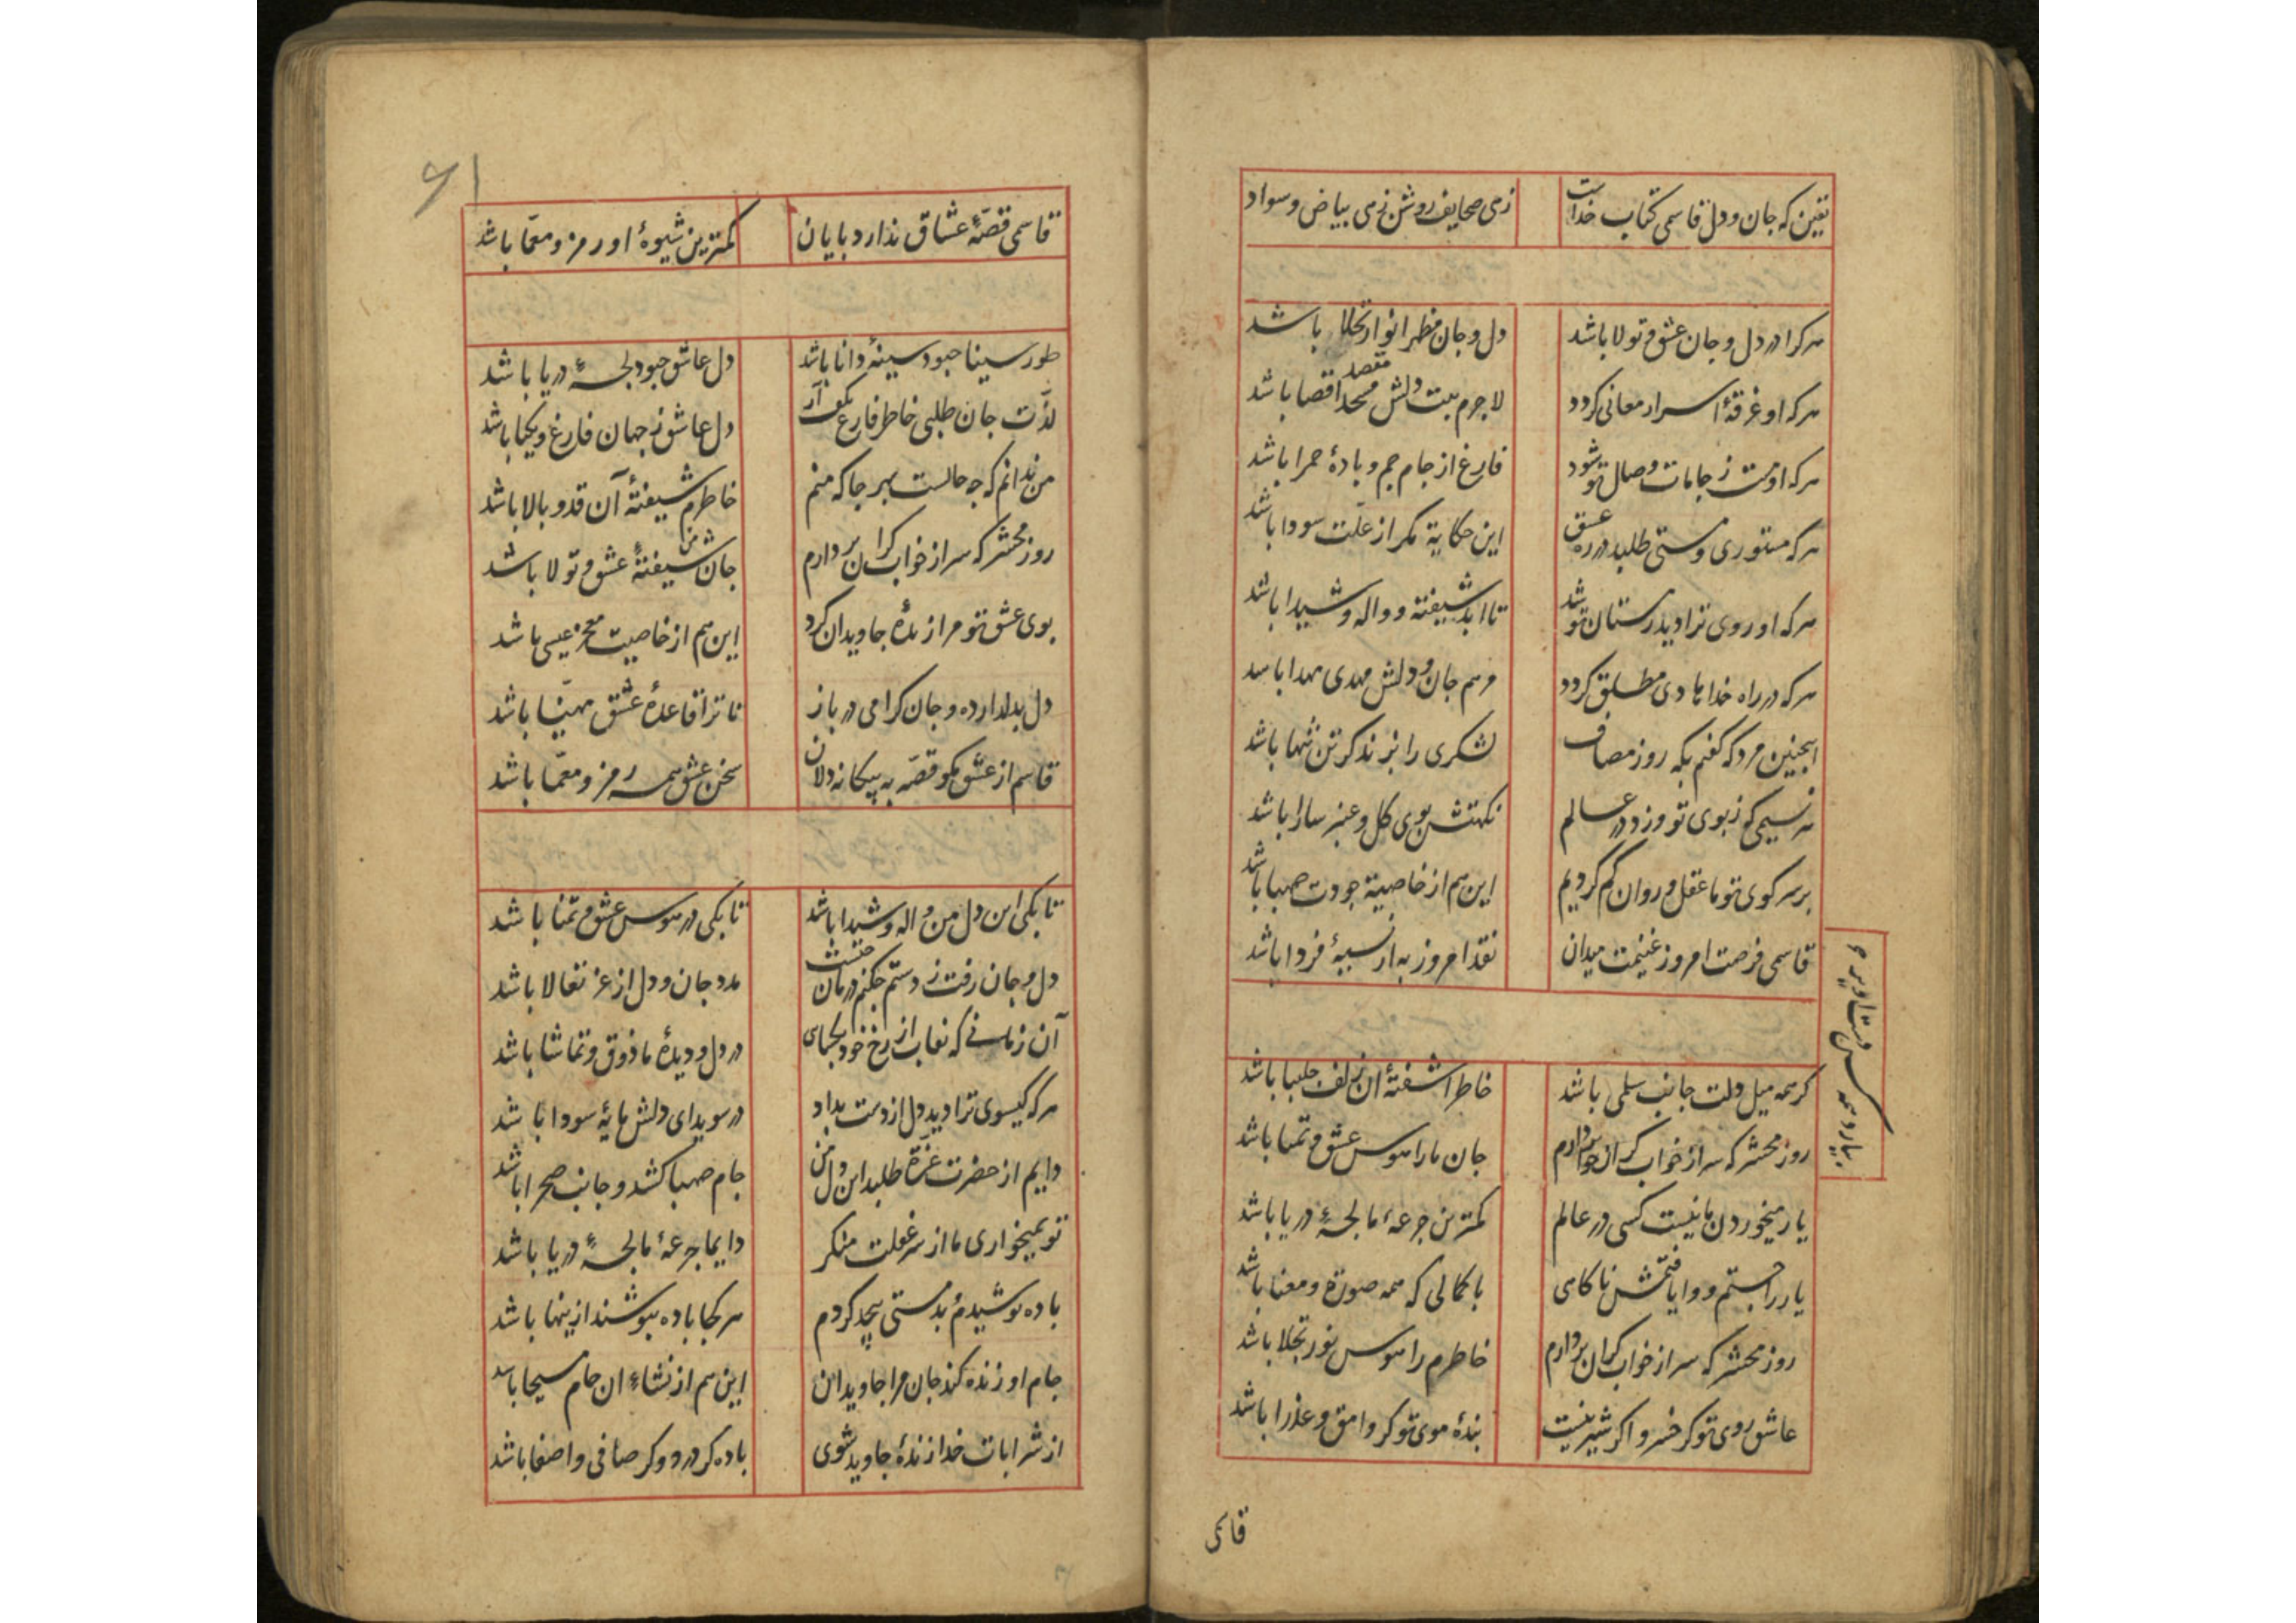 یقین که جان و دل قاسمی کتاب خداست زهی صحایف روشن زهی بیاض و سواد
هرکرا در دل و جان عشق و تولا باشد دل و جان مظهر انوار تجلا باشد
هرکه او غرقهٔ اسرار معانی کردد لاجرم بیت دلش مقصد اقصا باشد
هرکه او مست ز جامات وصال تو شود فارغ از جام جم و بادهٔ حمرا باشد
هرکه مستوری و مستی طلبد در ره عشق این حکایة مکر از علّت سودا باشد
هرکه او روی ترا دید ز مستان تو شد تا ابد شیفته و واله و شیدا باشد
هرکه در راه خدا هادی مطلق کردد مرهم جان و دلش مهدی مهدا باشد
اینچنین مرد که کفتم بکه روز مصاف لشکری را بزند کر تن تنها باشد
هر نسیمی که ز بوی تو وزد در عالم نکهتش بوی کل و عنبر سارا باشد
بر سر کوی تو ما عقل و روان کم کردیم این هم از خاصیة جودت صهبا باشد
قاسمی فرصت امروز غنیمت میدان نقد امروز به از نسیهٔ فردا باشد
کر همه میل دلت جانب سلمی باشد خاطر اشفتهٔ ان زلف چلیپا باشد
روز محشر که سر از خواب کران بردارم جان ما را هوس عشق و تمنا باشد
یار میخوردن ما نیست کسی در عالم کمترین جرعهٔ ما لجهٔ دریا باشد
یار را جستم و وا یافتمش ناکامی با کمالی که همه صورة و معنا باشد
روز محشر که سر از خواب کران بردارم خاطرم را هوس نور تجلا باشد
عاشق روی تو کر خسرو اکر شیرینست بندهٔ موی تو کر وامق و عذرا باشد
قاسمی
۶۱
قاسمی قصّهٔ عشاق ندارد پایان کمترین شیوهٔ او رمز و معمّا باشد
طور سینا چبود سینهٔ دانا باشد دل عاشق چبود لجهٔ دریا باشد
لذّت جان طلبی خاطر فارغ بکف آر دل عاشق ز جهان فارغ و یکتا باشد
من ندانم که چه حالست بهر جا که منم خاطرم شیفتهٔ آن قد و بالا باشد
روز محشر که سر از خواب کران بردارم جان من شیفتهٔ عشق و تولا باشد
بوی عشق تو مرا زندهٔ جاویدان کرد این هم از خاصیت معجز عیسی باشد
دل بدلدار ده و جان کرامی در باز تا ترا قاعدهٔ عشق مهیّا باشد
قاسم از عشق مکو قصّه به بیکانه دلان سخن عشق همه رمز و معمّا باشد
تا بکی این دل من واله و شیدا باشد تا بکی در هوس عشق و تمنا باشد
دل و جان رفت ز دستم چکنم درمان چیست مدد جان و دل از عز تعالا باشد
آن زمانی که نقاب از رخ خود بکشای در دل و دیدهٔ ما ذوق و تماشا باشد
هرکه کیسوی ترا دید دل از دست بداد در سویدای دلش مایهٔ سودا باشد
دایم از حضرت عزّة طلبد این دل من جام صهبا کشد و جانب صحرا باشد
تو بمیخواری ما از سر غفلت منکر دایما جرعهٔ ما لجهٔ دریا باشد
باده نوشیدم و بدمستی بیحد کردم هر کجا باده بنوشند ازینها باشد
جام او زنده کند جان مرا جاویدان این هم از نشاء ان جام مسیحا باشد
از شرابات خدا زندهٔ جاوید شوی باده کر درد و کر صافی و اصفا باشد